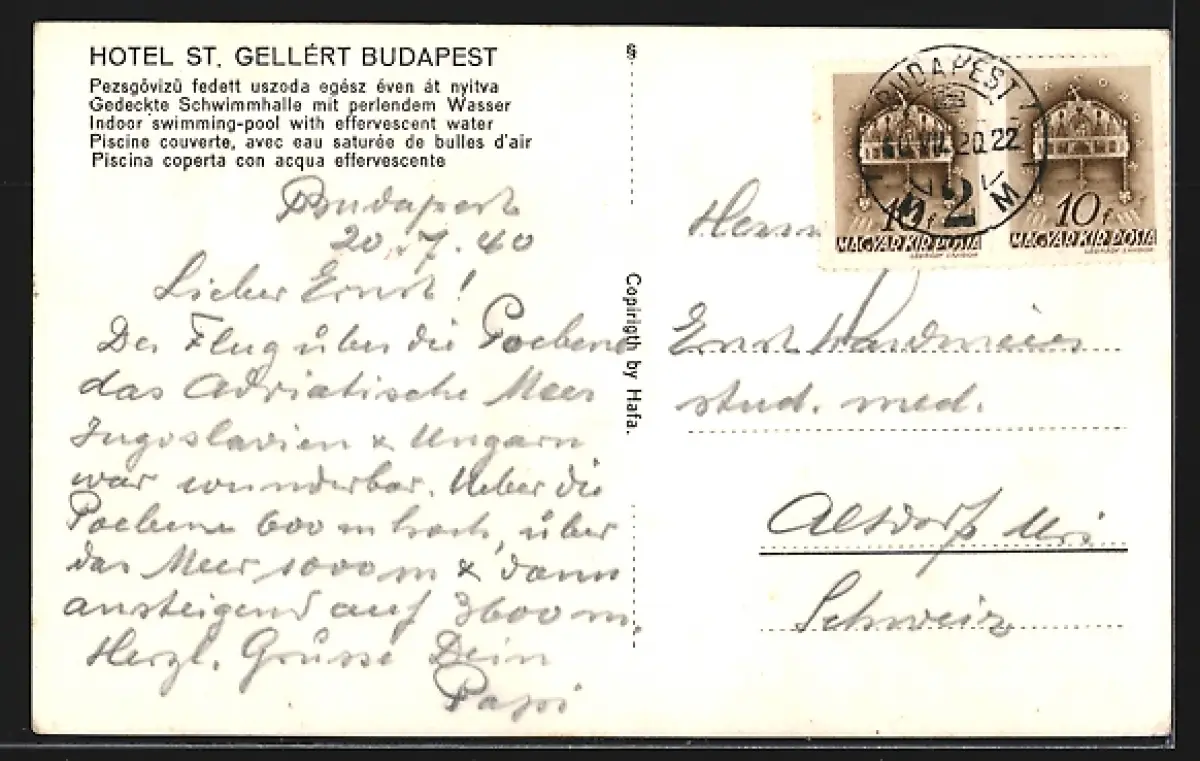 HOTEL ST. GELLÉRT BUDAPEST
Pezsgővizű fedett uszoda egész éven át nyitva
Gedeckte Schwimmhalle mit perlendem Wasser
Indoor swimming-pool with effervescent water
Piscine couverte, avec eau saturée de bulles d'air
Piscina coperta con acqua effervescente
Budapest
20.7.40
Lieber Ernst!
Der Flug über die Poebene
das Adriatische Meer
Jugoslavien & Ungarn
war wunderbar. Ueber die
Poebene 600 m hoch, über
das Meer 1000 m & dann
ansteigend auf 3600 m.
Herzl. Grüsse Dein
Papi
Copirigth by Hafa.
BUDAPEST
20.22
2
M
10f
MAGYAR KIR. POSTA
LÉGRÁDY SÁNDOR
10f
MAGYAR KIR. POSTA
LÉGRÁDY SÁNDOR
Herrn
Ernst
stud. med.
Altdorf Uri
Schweiz